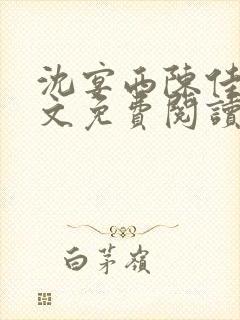 沈宴西陳佳
文免費閱讀
白茅嶺